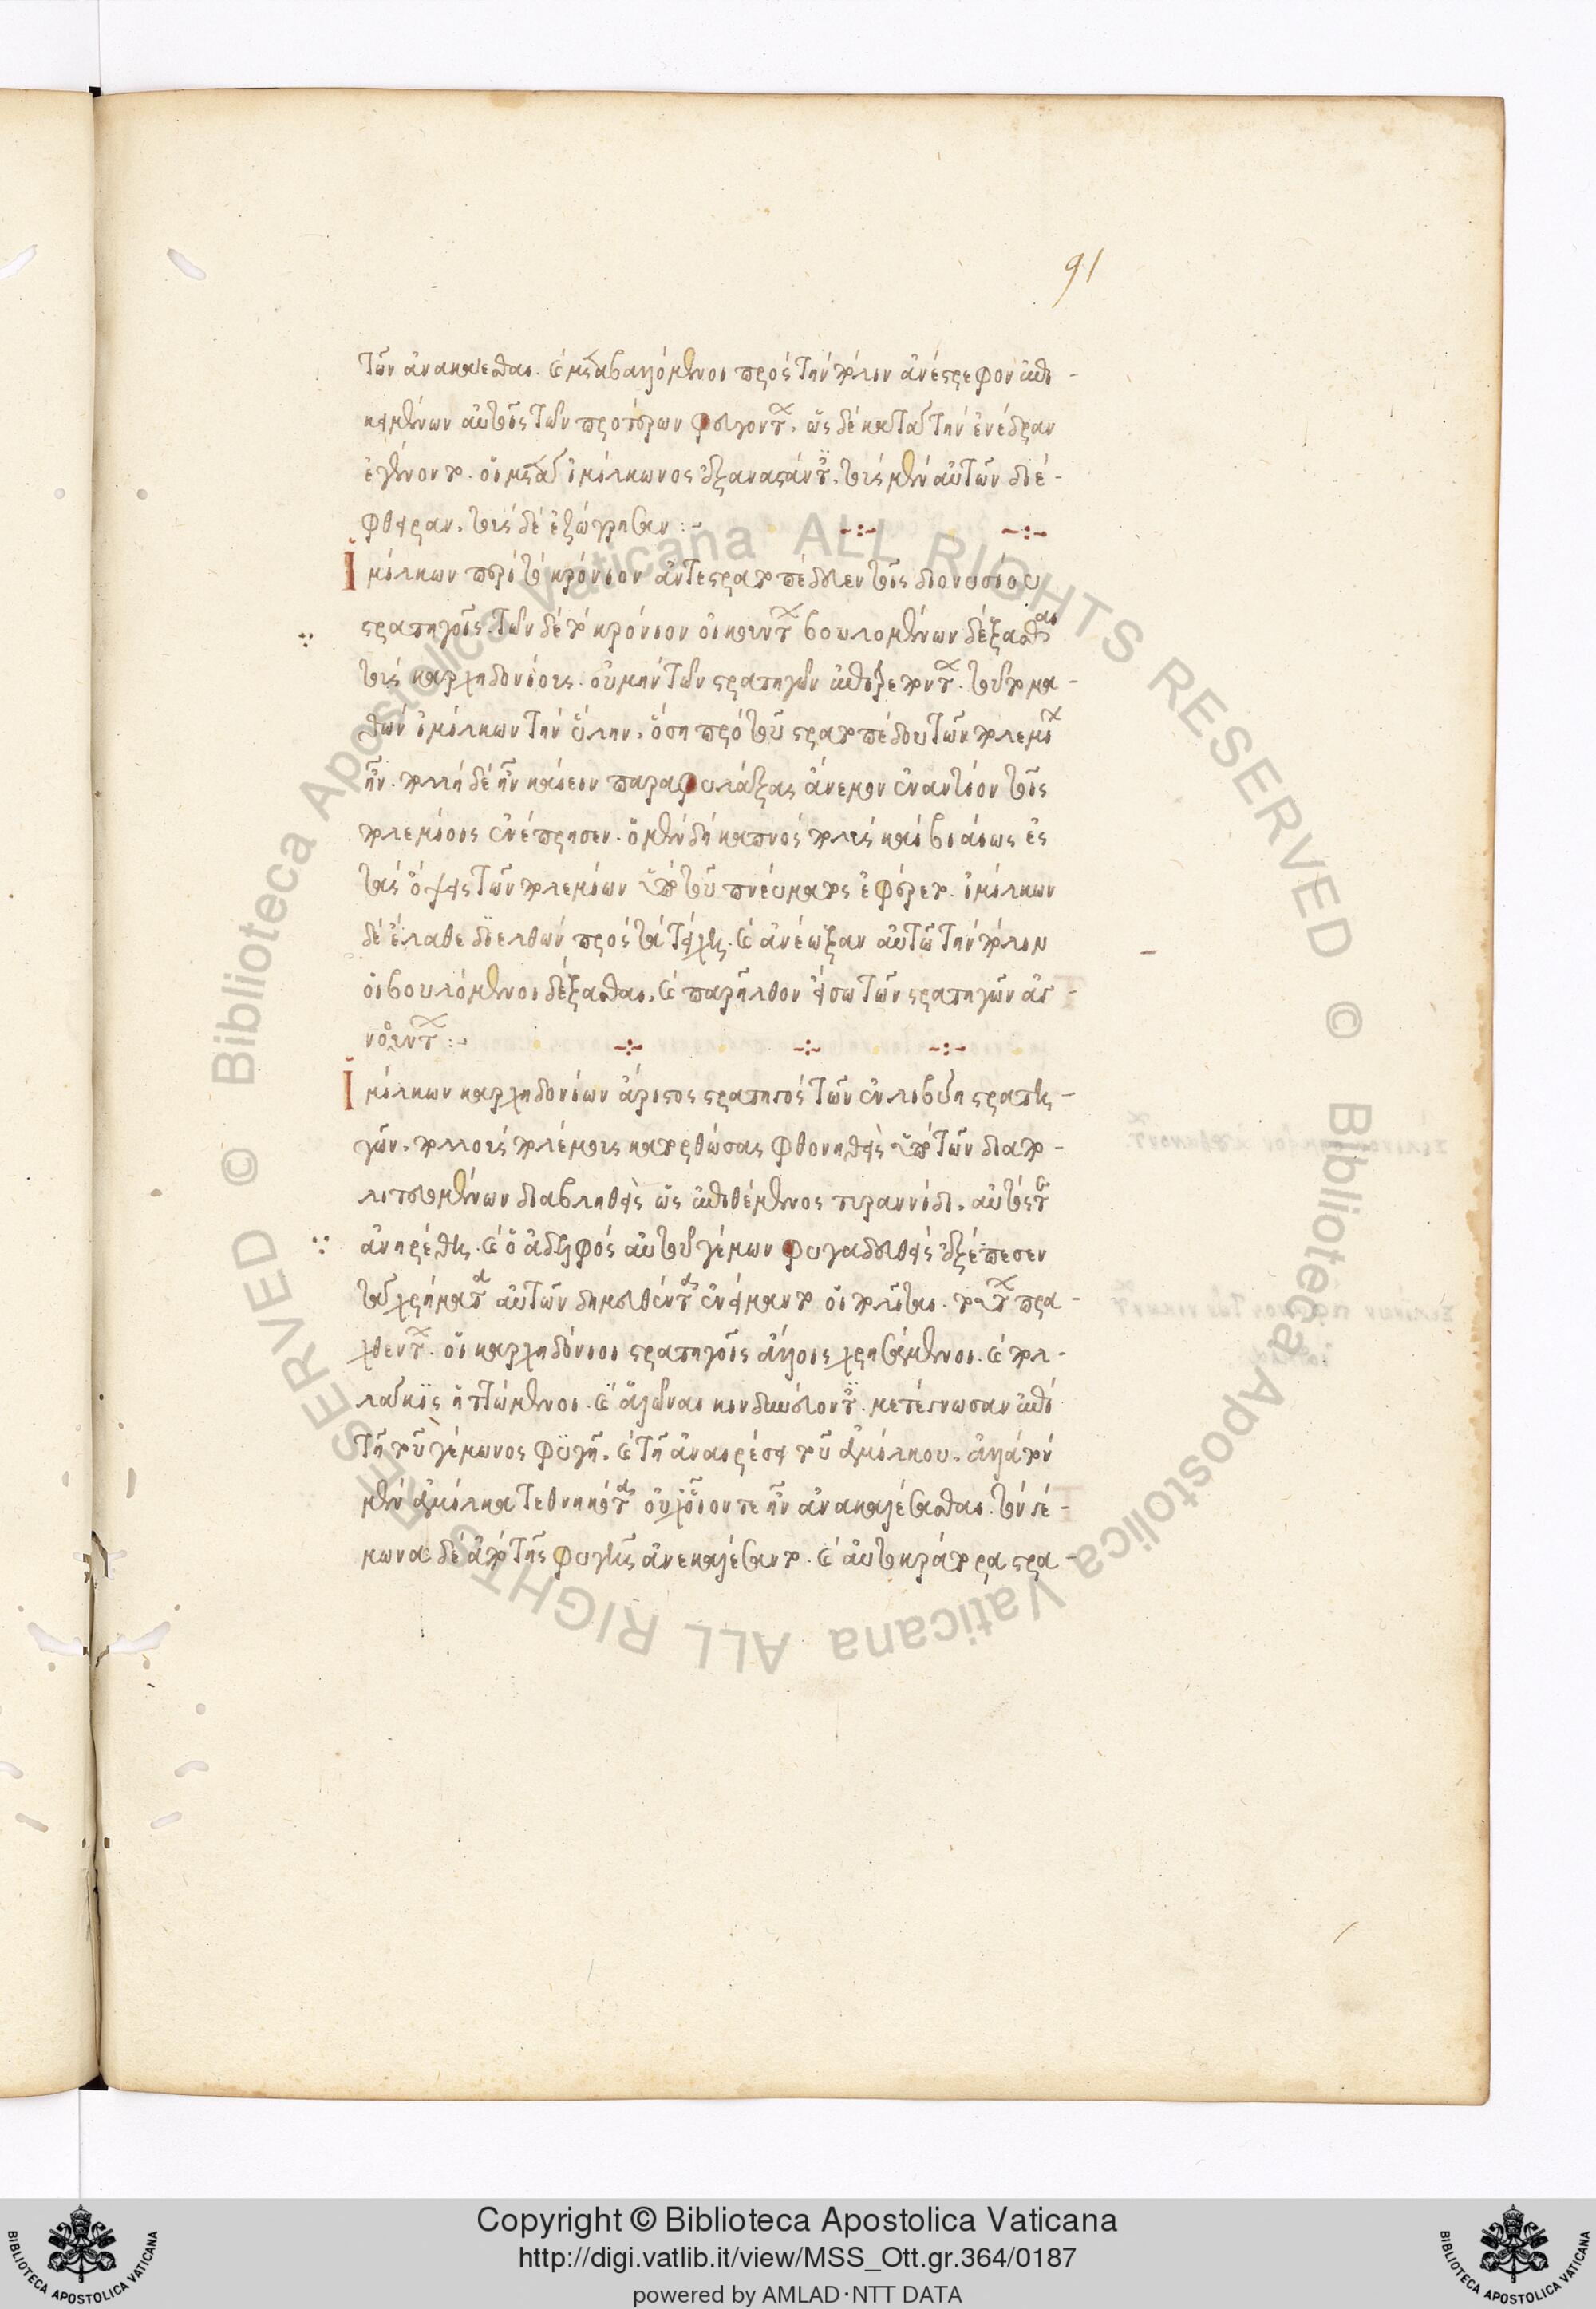 91
τῶν ἀνακαεῖσθαι. καὶ μεταβαλλόμενοι πρὸς τὴν πόλιν ἀνέστρεφον ἐπι-
κειμένων αὐτοῖς τῶν προτέρων φευγόντων. ὡς δὲ κατὰ τὴν ἐνέδραν
ἐγένοντο. οἱ μετὰ ἱμίλκωνος ἐξαναστάντες, τοὺς μὲν αὐτῶν διέ-
φθειραν, τοὺς δὲ ἐζώγρησαν:-
Ἰμίλκων περὶ τὸ κρόνιον ἀντεστρατοπέδευεν τοῖς διονυσίου
στρατηγοῖς. τῶν δὲ τὸ κρόνιον οἰκούντων βουλομένων δέξασθαι
τοὺς καρχηδονίους. οὐ μὴν τῶν στρατηγῶν ἐπιτρεπόντων. τοῦτο μα-
θὼν ἱμίλκων τὴν ὕλην, ὅση πρὸ τοῦ στρατοπέδου τῶν πολεμίων
ἦν. πολλὴ δὲ ἦν καίειν παραφυλάξας ἄνεμον ἐναντίον τοῖς
πολεμίοις ἐνέπρησεν. ὁ μὲν δὴ καπνὸς πολὺς καὶ βιαίως ἐς
τὰς ὄψεις τῶν πολεμίων ὑπὸ τοῦ πνεύματος ἐφέρετο. ἱμίλκων
δὲ ἔλαθε διελθὼν πρὸς τὰ τείχη. καὶ ἀνέωξαν αὐτῷ τὴν πόλιν
οἱ βουλόμενοι δέξασθαι, καὶ παρῆλθον εἴσω τῶν στρατηγῶν ἀγ-
νοούντων:-
Ἰμίλκων καρχηδονίων ἄριστος στρατηγὸς τῶν ἐν λιβύῃ στρατη-
γῶν, πολλοὺς πολέμους κατορθώσας φθονηθεὶς ὑπὸ τῶν διαπο-
λιτευομένων διαβληθεὶς ὡς ἐπιθέμενος τυραννίδι, αὐτός τε
ἀνηρέθη. καὶ ὁ ἀδελφὸς αὐτοῦ γέμων φυγαδευθεὶς ἐξέπεσεν
τὰ χρήματα αὐτῶν δημευθέντα ἐνείμαντο οἱ πολῖται. τούτων πρα-
χθέντων. οἱ καρχηδόνιοι στρατηγοῖς ἄλλοις χρησάμενοι. καὶ πολ-
λάκις ἡττώμενοι. καὶ ἁλῶναι κινδυνεύοντες. μετέγνωσαν ἐπὶ
τῇ τοῦ γέμωνος φυγῇ. καὶ τῇ ἀναιρέσει τοῦ ἀμίλκου. ἀλλὰ τὸν
μὲν ἀμίλκα τεθνηκότα οὐχ οἷόν τε ἦν ἀνακαλέσασθαι. τὸν γέ-
μωνα δὲ ἀπὸ τῆς φυγῆς ἀνεκαλέσαντο. καὶ αὐτοκράτορα στρα-
Copyright © Biblioteca Apostolica Vaticana
http://digi.vatlib.it/view/MSS_Ott.gr.364/0187
powered by AMLAD·NTT DATA